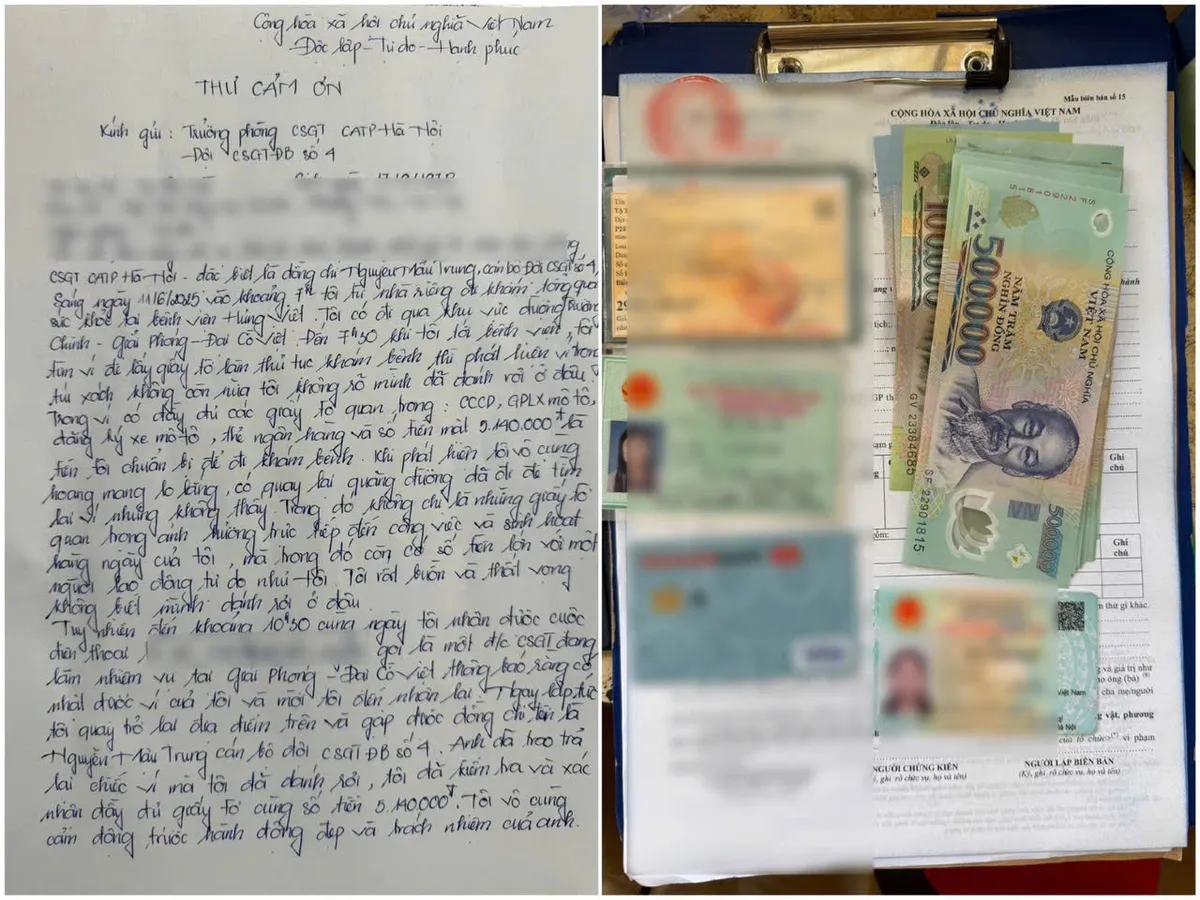 Cộng hòa xã hội chủ nghĩa Việt Nam
- Độc lập - Tự do - Hạnh phúc
THƯ CẢM ƠN
Kính gửi : Trưởng phòng CSGT CATP Hà Nội
- Đội CSGT ĐB số 4
CSGT CATP Hà Nội - đặc biệt là đồng chí Nguyễn Mậu Trung, cán bộ Đội CSGT số 4,
Sáng ngày 11/6/2025 vào khoảng 7h tôi từ nhà riêng đi khám tổng quát
sức khỏe tại bệnh viện Hưng Việt. Tôi có đi qua khu vực đường Trường
Chinh - Giải Phóng - Đại Cồ Việt. Đến 7h30 khi tôi tới bệnh viện, tôi
tìm ví để lấy giấy tờ làm thủ tục khám bệnh thì phát hiện ví trong
túi xách không còn nữa tôi không rõ mình đã đánh rơi ở đâu.
Trong ví có đầy đủ các giấy tờ quan trọng : CCCD, GPLX mô tô,
đăng ký xe mô tô, thẻ ngân hàng và số tiền mặt 5.140.000đ là
tiền tôi chuẩn bị để đi khám bệnh. Khi phát hiện tôi vô cùng
hoang mang lo lắng, có quay lại quãng đường đã đi để tìm
lại ví nhưng không thấy. Trong đó không chỉ là những giấy tờ
quan trọng ảnh hưởng trực tiếp đến công việc và sinh hoạt
hàng ngày của tôi, mà trong đó còn có số tiền lớn với một
người lao động tự do như tôi. Tôi rất buồn và thất vọng
không biết mình đánh rơi ở đâu.
Tuy nhiên đến khoảng 10h30 cùng ngày tôi nhận được cuộc
điện thoại gọi là một đ/c CSGT đang
làm nhiệm vụ tại Giải Phóng - Đại Cồ Việt thông báo rằng có
nhặt được ví của tôi và mời tôi đến nhận lại. Ngay lập tức
tôi quay trở lại địa điểm trên và gặp được đồng chí tên là
Nguyễn Mậu Trung cán bộ đội CSGT ĐB số 4. Anh đã trao trả
lại chiếc ví mà tôi đã đánh rơi, tôi đã kiểm tra và xác
nhận đầy đủ giấy tờ cùng số tiền 5.140.000đ. Tôi vô cùng
cảm động trước hành động đẹp và trách nhiệm của anh.
Mẫu biên bản số 15
CỘNG HÒA XÃ HỘI CHỦ NGHĨA VIỆT NAM
SF 22901815
100000
500000
NĂM TRĂM
NGHÌN ĐỒNG
CỘNG HÒA XÃ HỘI CHỦ NGHĨA
VIỆT NAM
GV 23384685
SF 22901815
500000
Ghi
chú
Ghi
chú
thứ gì khác.
và giá trị như
cho ông (bà)
cha mẹ/người
Việt Nam
vật, phương
vi phạm
NGƯỜI CHỨNG KIẾN
NGƯỜI LẬP BIÊN BẢN
ghi rõ chức vụ, họ và tên)
(Ký, ghi rõ chức vụ, họ và tên)